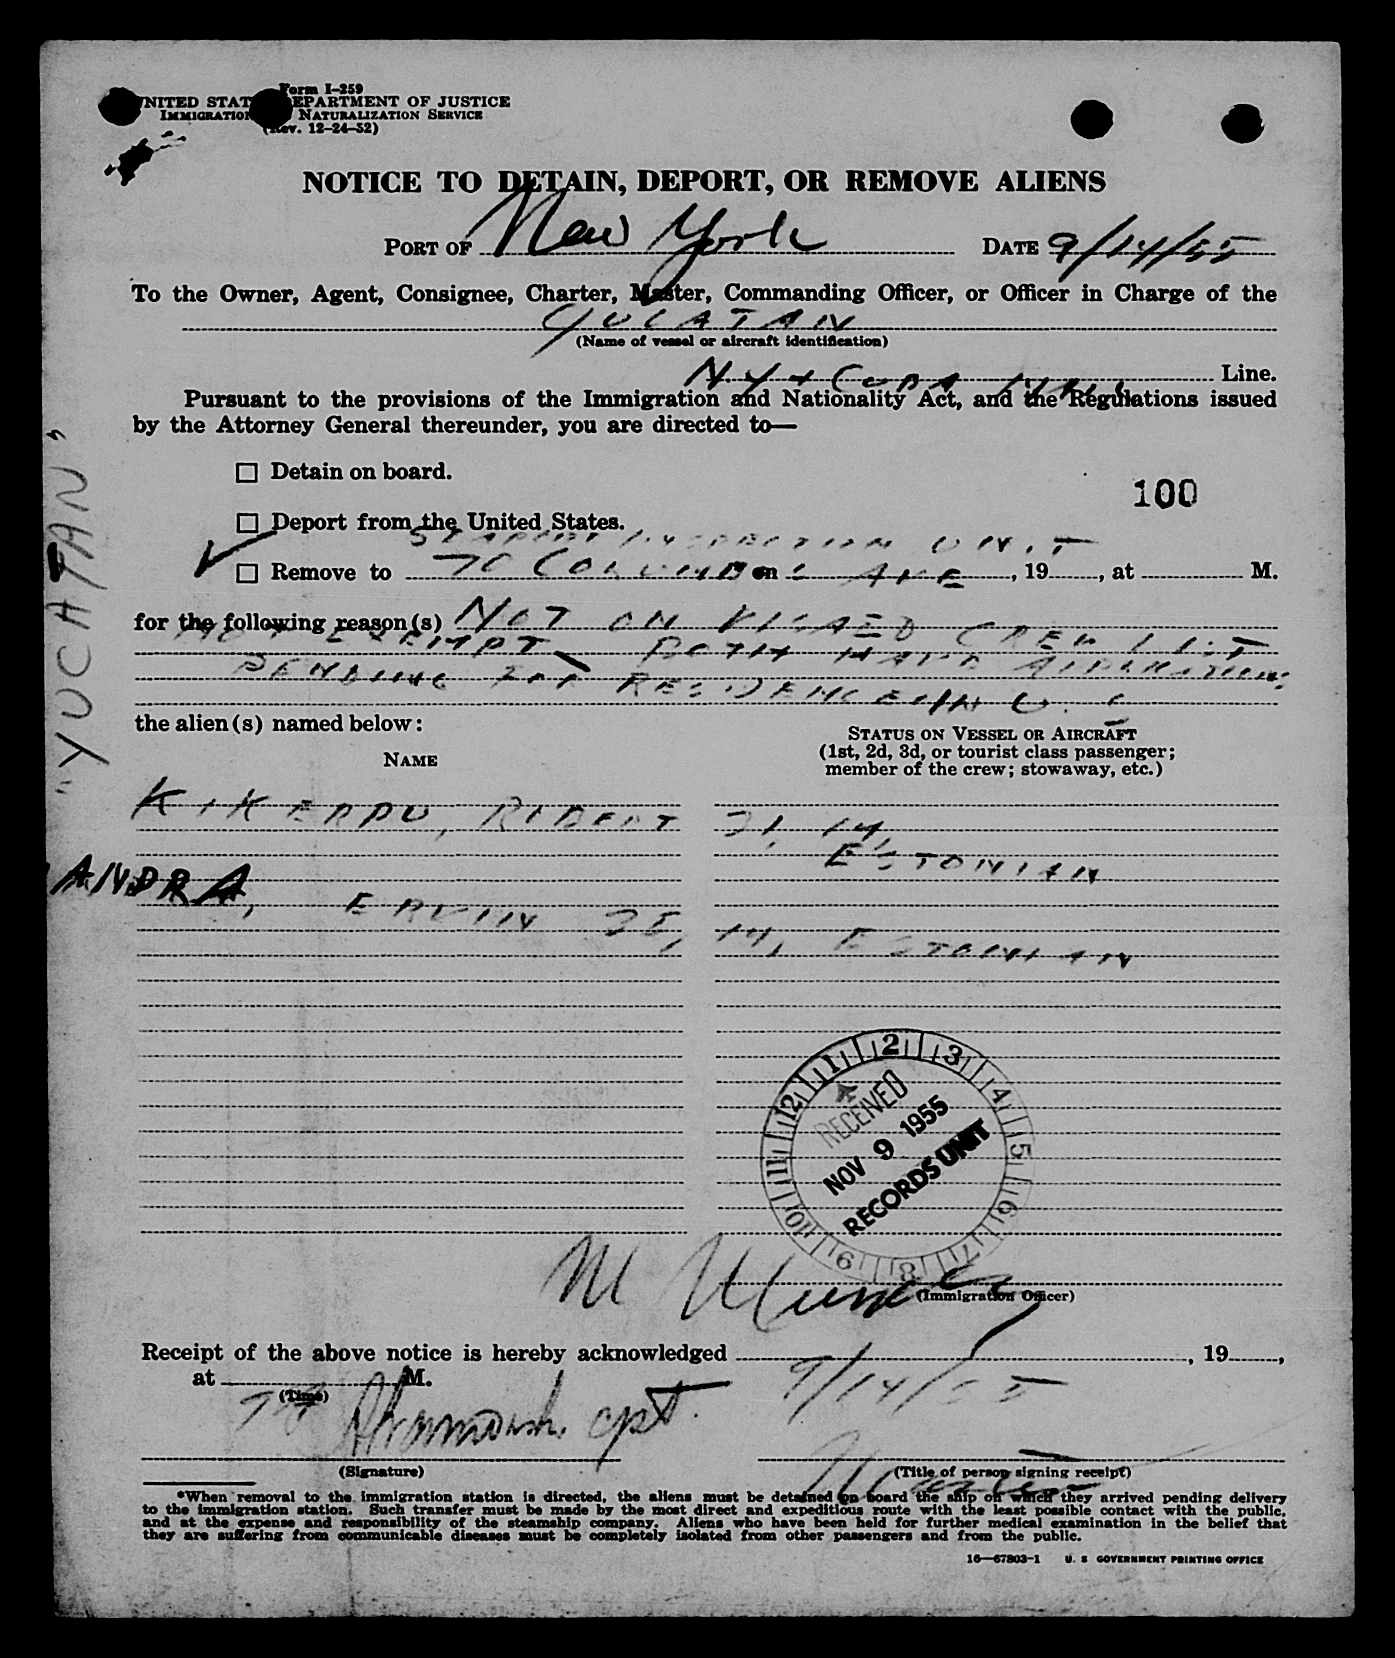 Form I-259
UNITED STATES DEPARTMENT OF JUSTICE
IMMIGRATION NATURALIZATION SERVICE
(Rev. 12-24-52)
NOTICE TO DETAIN, DEPORT, OR REMOVE ALIENS
PORT OF New York DATE 9/14/55
To the Owner, Agent, Consignee, Charter, Master, Commanding Officer, or Officer in Charge of the
YUCATAN
(Name of vessel or aircraft identification)
N.Y + CUBA MAIL Line.
Pursuant to the provisions of the Immigration and Nationality Act, and the Regulations issued
by the Attorney General thereunder, you are directed to—
☐ Detain on board.
100
☐ Deport from the United States.
INSPECTION UNIT
✓ ☐ Remove to 70 COLUMBUS AVE on , 19 , at M.
for the following reason(s) NOT ON VISAED CREW LIST
NOT EXEMPT BOTH HAVE APPLICATIONS
PENDING FOR RESIDENCE IN U. S
the alien(s) named below:
"YUCATAN"
NAME
STATUS ON VESSEL OR AIRCRAFT
(1st, 2d, 3d, or tourist class passenger;
member of the crew; stowaway, etc.)
KIKERPPU, ROBERT 31, M,
ESTONIAN
ANDRA, ERVIN 35, M, ESTONIAN
12 1 2 3 4 5 6 7 8 9 10 11
RECEIVED
NOV 9 1955
RECORDS UNIT
M
(Immigration Officer)
Receipt of the above notice is hereby acknowledged , 19 ,
9/14/55
at M.
(Time)
cpt.
(Signature)
Master
(Title of person signing receipt)
*When removal to the immigration station is directed, the aliens must be detained on board the ship on which they arrived pending delivery
to the immigration station. Such transfer must be made by the most direct and expeditious route with the least possible contact with the public,
and at the expense and responsibility of the steamship company. Aliens who have been held for further medical examination in the belief that
they are suffering from communicable diseases must be completely isolated from other passengers and from the public.
16—67803-1 U. S GOVERNMENT PRINTING OFFICE